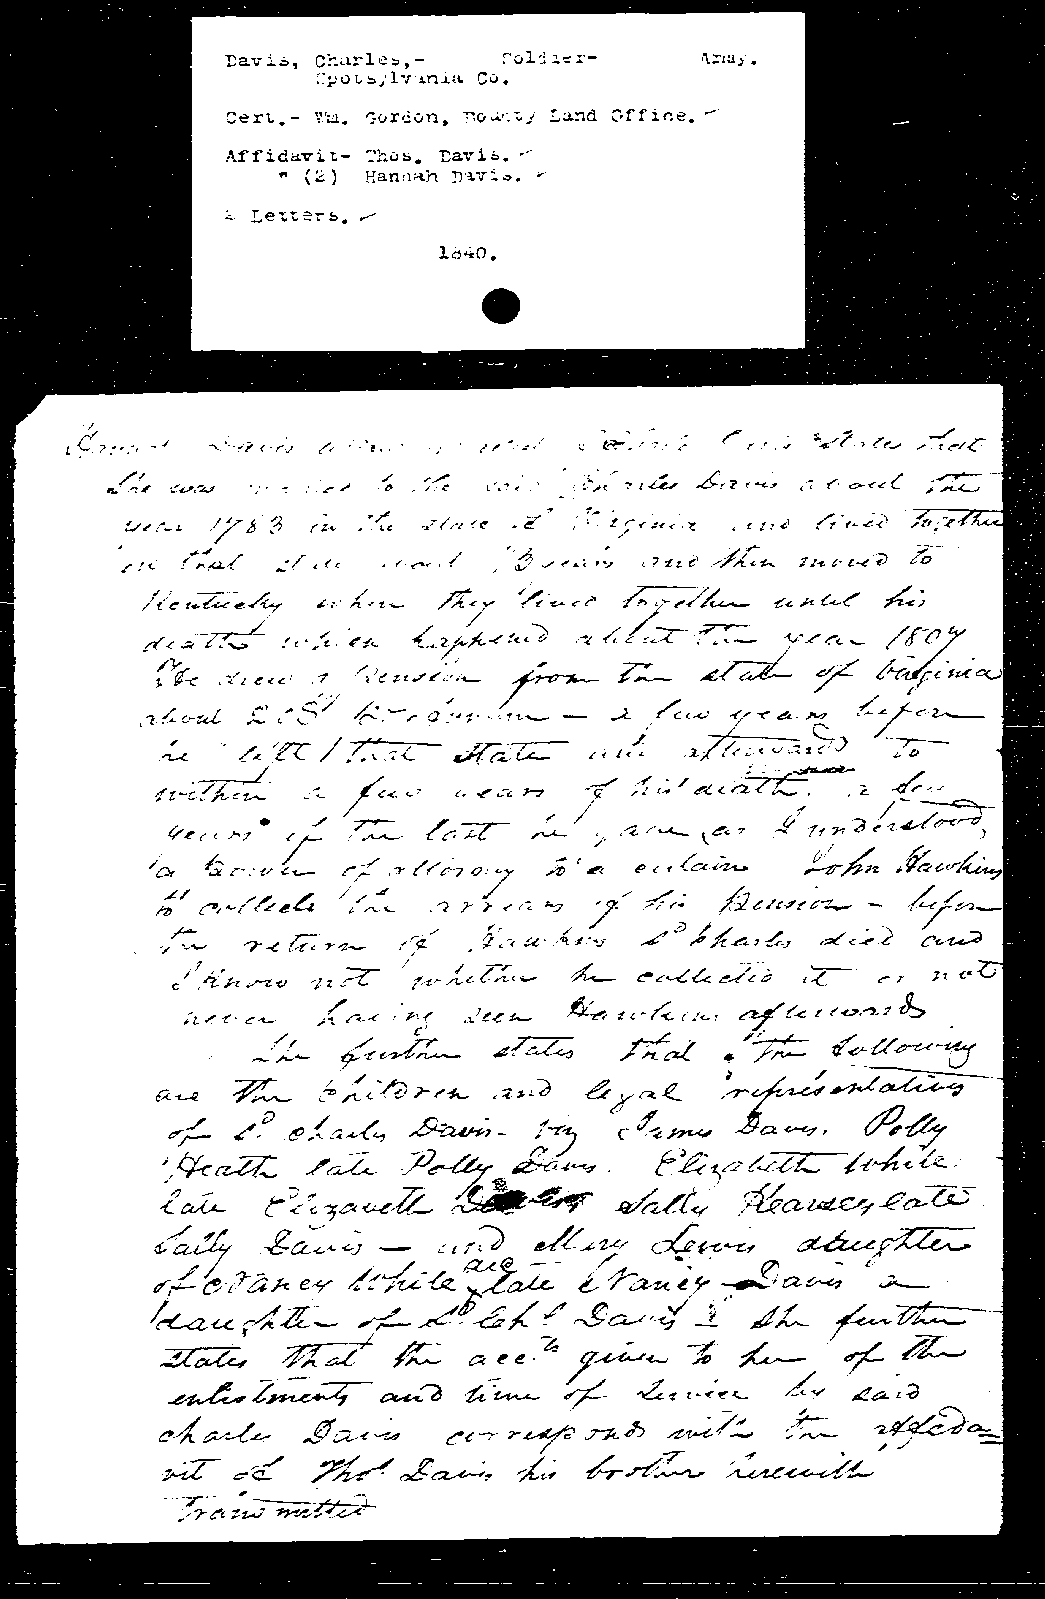 Davis, Charles,- Soldier- Army.
Spotsylvania Co.
Cert.- Wm. Gordon, Bounty Land Office.
Affidavit- Thos. Davis.
" (2) Hannah Davis.
Letters.
1840.
Davis states that
She was married to the said Charles Davis about the
year 1783 in the state of Virginia and lived together
in that state about years and then moved to
Kentucky when they lived together until his
death which happened about the year 1807
He drew a Pension from the state of Virginia
about a few years before
he left that state and afterwards to
within a few years of his death. a few
years of the last he gave, as I understood,
a Power of attorney to a certain John Hawkins
to collect the arrears of his Pension - before
the return of Hawkins sd Charles died and
I know not whether he collected it or not
never having seen Hawkins afterwards
She further states that the following
are the Children and legal representatives
of sd. Charles Davis - viz James Davis. Polly
Heath late Polly Davis. Elizabeth White
late Elizabeth Davis Sally Kearsey late
Sally Davis - and Mary Lewis daughter
of Nancy White late Nancy Davis a
daughter of sd. Chs. Davis & She further
states that the accts. given to her of the
enlistments and time of service by said
Charles Davis corresponds with the affida=
vit of Thos. Davis his brother herewith
Transmitted